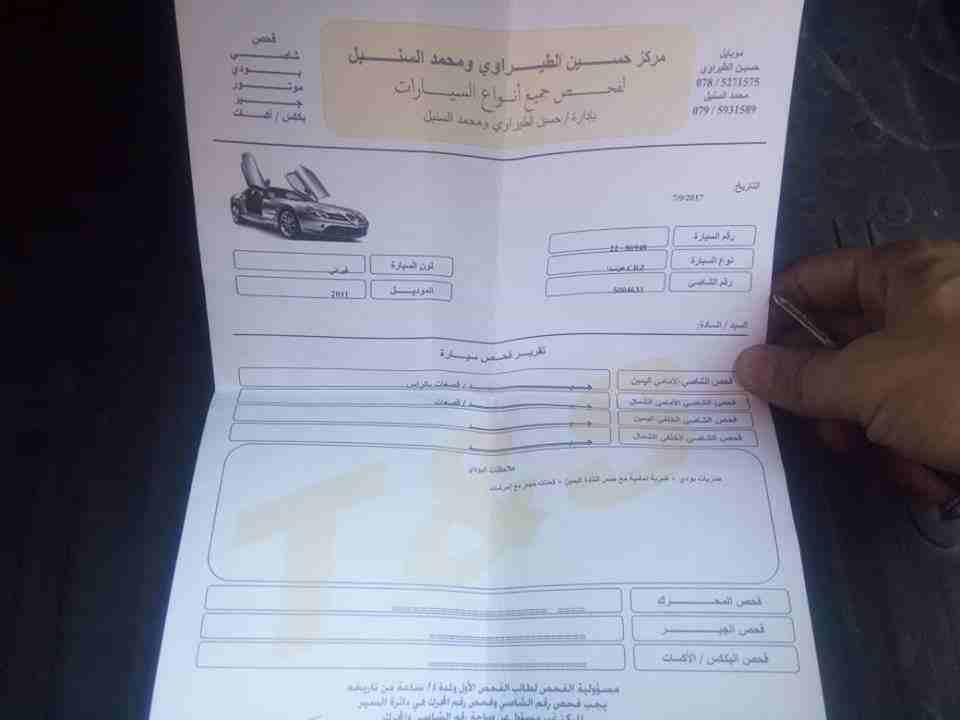 فحص
شاصي
بودي
موتور
جير
بكس / أكسات
مركز حسين الطيراوي ومحمد السنبل
لفحص جميع أنواع السيارات
بإدارة / حسين الطيراوي ومحمد السنبل
موبايل
حسين الطيراوي
078 / 5271575
محمد السنبل
079 / 5931589
التاريخ:
7/9/2017
رقم السيارة
نوع السيارة CRZ هوندا
رقم الشاصي
لون السيارة
الموديل 2011
السيد / السادة:
تقرير فحص سيارة
فحص الشاصي الأمامي اليمين جيد / قصعات بالراس
فحص الشاصي الأمامي الشمال جيد / قصعات
فحص الشاصي الخلفي اليمين جيد
فحص الشاصي الخلفي الشمال جيد
ملاحظات البودي
ضربات بودي + ضربة أمامية مع
فحص المحرك
فحص الجير
فحص البكس / الأكسات
مسؤولية الفحص لطالب الفحص الأول ولمدة ساعة من تاريخه
يجب فحص رقم الشاصي وفحص رقم المحرك في دائرة السير
المركز غير مسؤول عن رقم الشاصي والمحرك